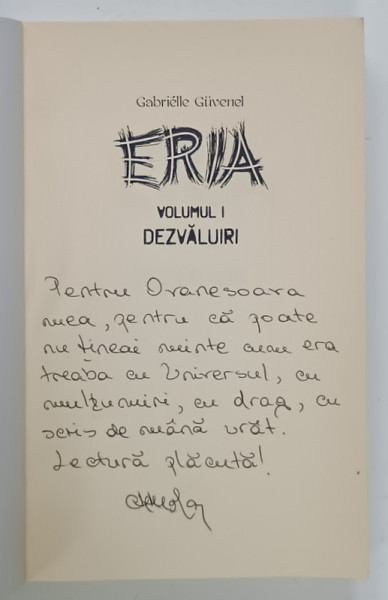 Gabriélle Güvenel
ERIA
VOLUMUL I
DEZVĂLUIRI
Pentru Oranesoara
mea, pentru că poate
nu țineai minte cum era
treaba cu Universul, cu
mulțumiri, cu drag, cu
scris de mână urât.
Lectură plăcută!